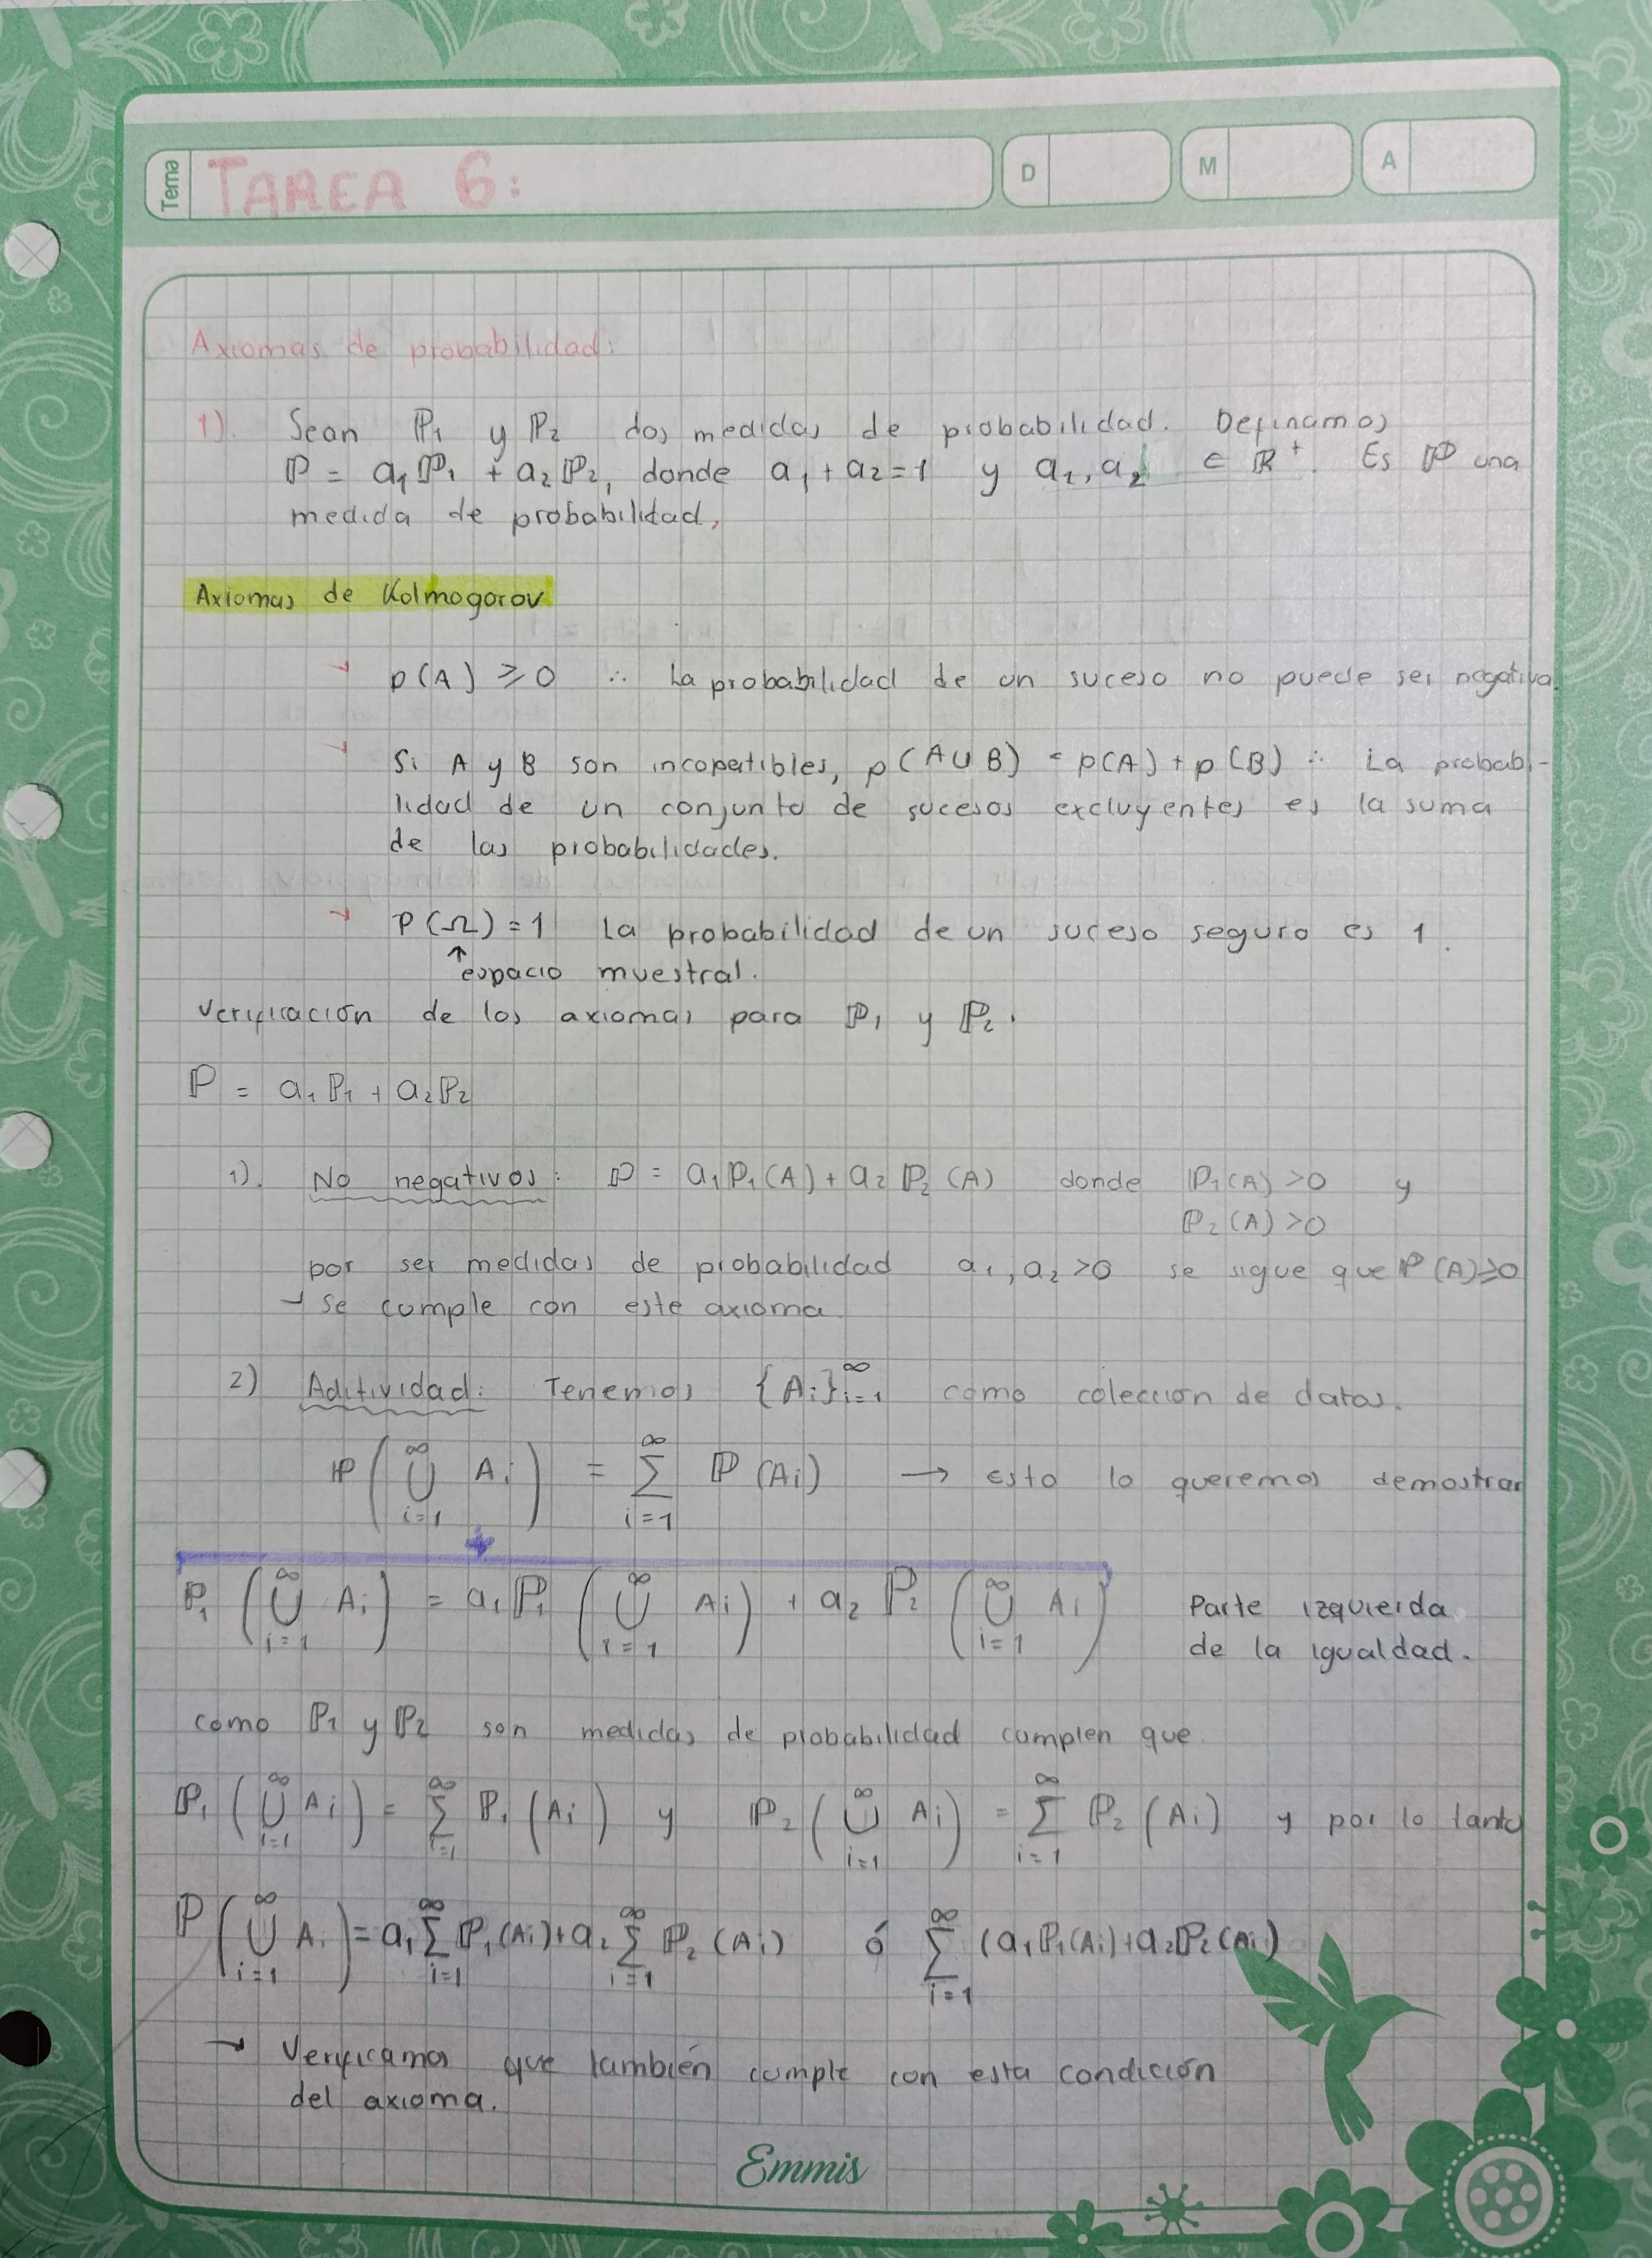 Tema TAREA 6: D M A
Axiomas de probabilidad:
1). Sean ℙ₁ y ℙ₂ dos medidas de probabilidad. Definamos
ℙ = a₁ℙ₁ + a₂ℙ₂, donde a₁ + a₂ = 1 y a₁, a₂ ∈ ℝ⁺. Es ℙ una
medida de probabilidad,
Axiomas de Kolmogorov
→ p(A) ⩾ 0 ∴ La probabilidad de un suceso no puede ser negativa.
→ Si A y B son incopatibles, p(A∪B) = p(A) + p(B) ∴ La probabi-
lidad de un conjunto de sucesos excluyentes es la suma
de las probabilidades.
→ P(Ω) = 1 La probabilidad de un suceso seguro es 1.
↑ espacio muestral.
Verificación de los axiomas para ℙ₁ y ℙ₂.
ℙ = a₁ℙ₁ + a₂ℙ₂
1). No negativos: ℙ = a₁ℙ₁(A) + a₂ℙ₂(A) donde ℙ₁(A) > 0 y
ℙ₂(A) > 0
por ser medidas de probabilidad a₁, a₂ > 0 se sigue que ℙ(A) ⩾ 0
→ se cumple con este axioma
2) Aditividad: Tenemos {Aᵢ}_{i=1}^∞ como colección de datos.
ℙ(⋃_{i=1}^∞ Aᵢ) = ∑_{i=1}^∞ ℙ(Aᵢ) → esto lo queremos demostrar
ℙ₁(⋃_{i=1}^∞ Aᵢ) = a₁ℙ₁(⋃_{i=1}^∞ Aᵢ) + a₂ℙ₂(⋃_{i=1}^∞ Aᵢ) Parte izquierda
de la igualdad.
como ℙ₁ y ℙ₂ son medidas de probabilidad cumplen que
ℙ₁(⋃_{i=1}^∞ Aᵢ) = ∑_{i=1}^∞ ℙ₁(Aᵢ) y ℙ₂(⋃_{i=1}^∞ Aᵢ) = ∑_{i=1}^∞ ℙ₂(Aᵢ) y por lo tanto
ℙ(⋃_{i=1}^∞ Aᵢ) = a₁∑_{i=1}^∞ ℙ₁(Aᵢ) + a₂∑_{i=1}^∞ ℙ₂(Aᵢ) ó ∑_{i=1}^∞ (a₁ℙ₁(Aᵢ) + a₂ℙ₂(Aᵢ)
→ Verificamos que también cumple con esta condición
del axioma.
Emmis